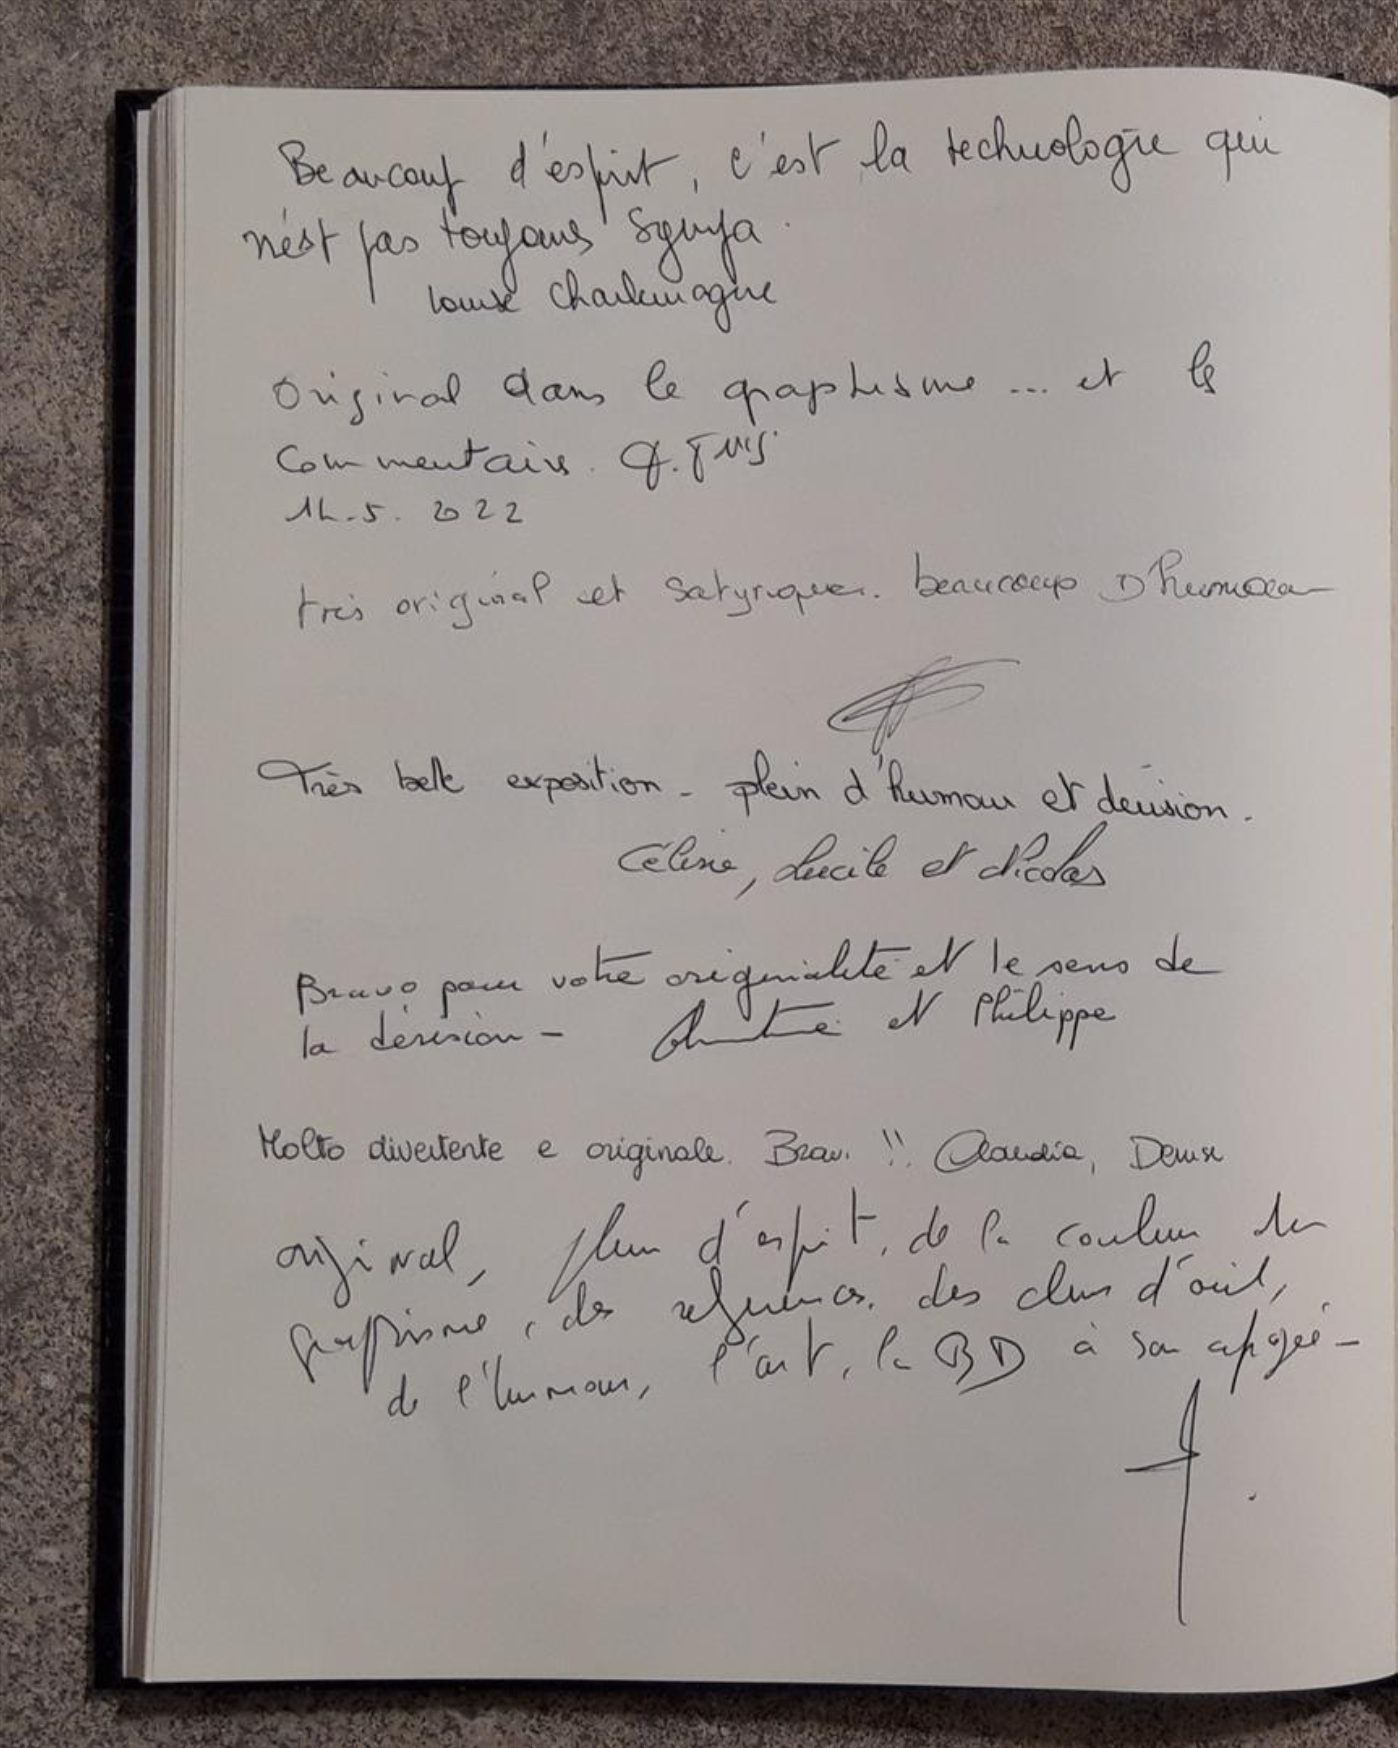 Beaucoup d'esprit, c'est la technologie qui
n'est pas toujours sympa.
Louise Charlemagne
Original dans le graphisme ... et le
Commentaire.
14.5.2022
très original et satyrique. beaucoup D'humour
Très belle exposition - plein d'humour et dérision.
Céline, Lucile et Nicolas
Bravo pour votre originalité et le sens de
la dérision - et Philippe
Molto divertente e originale. Bravi !! Claudia, Denise
original, plein d'esprit, de la couleur du
graphisme, des références, des clins d'œil,
de l'humour, l'art, la BD à son apogée -